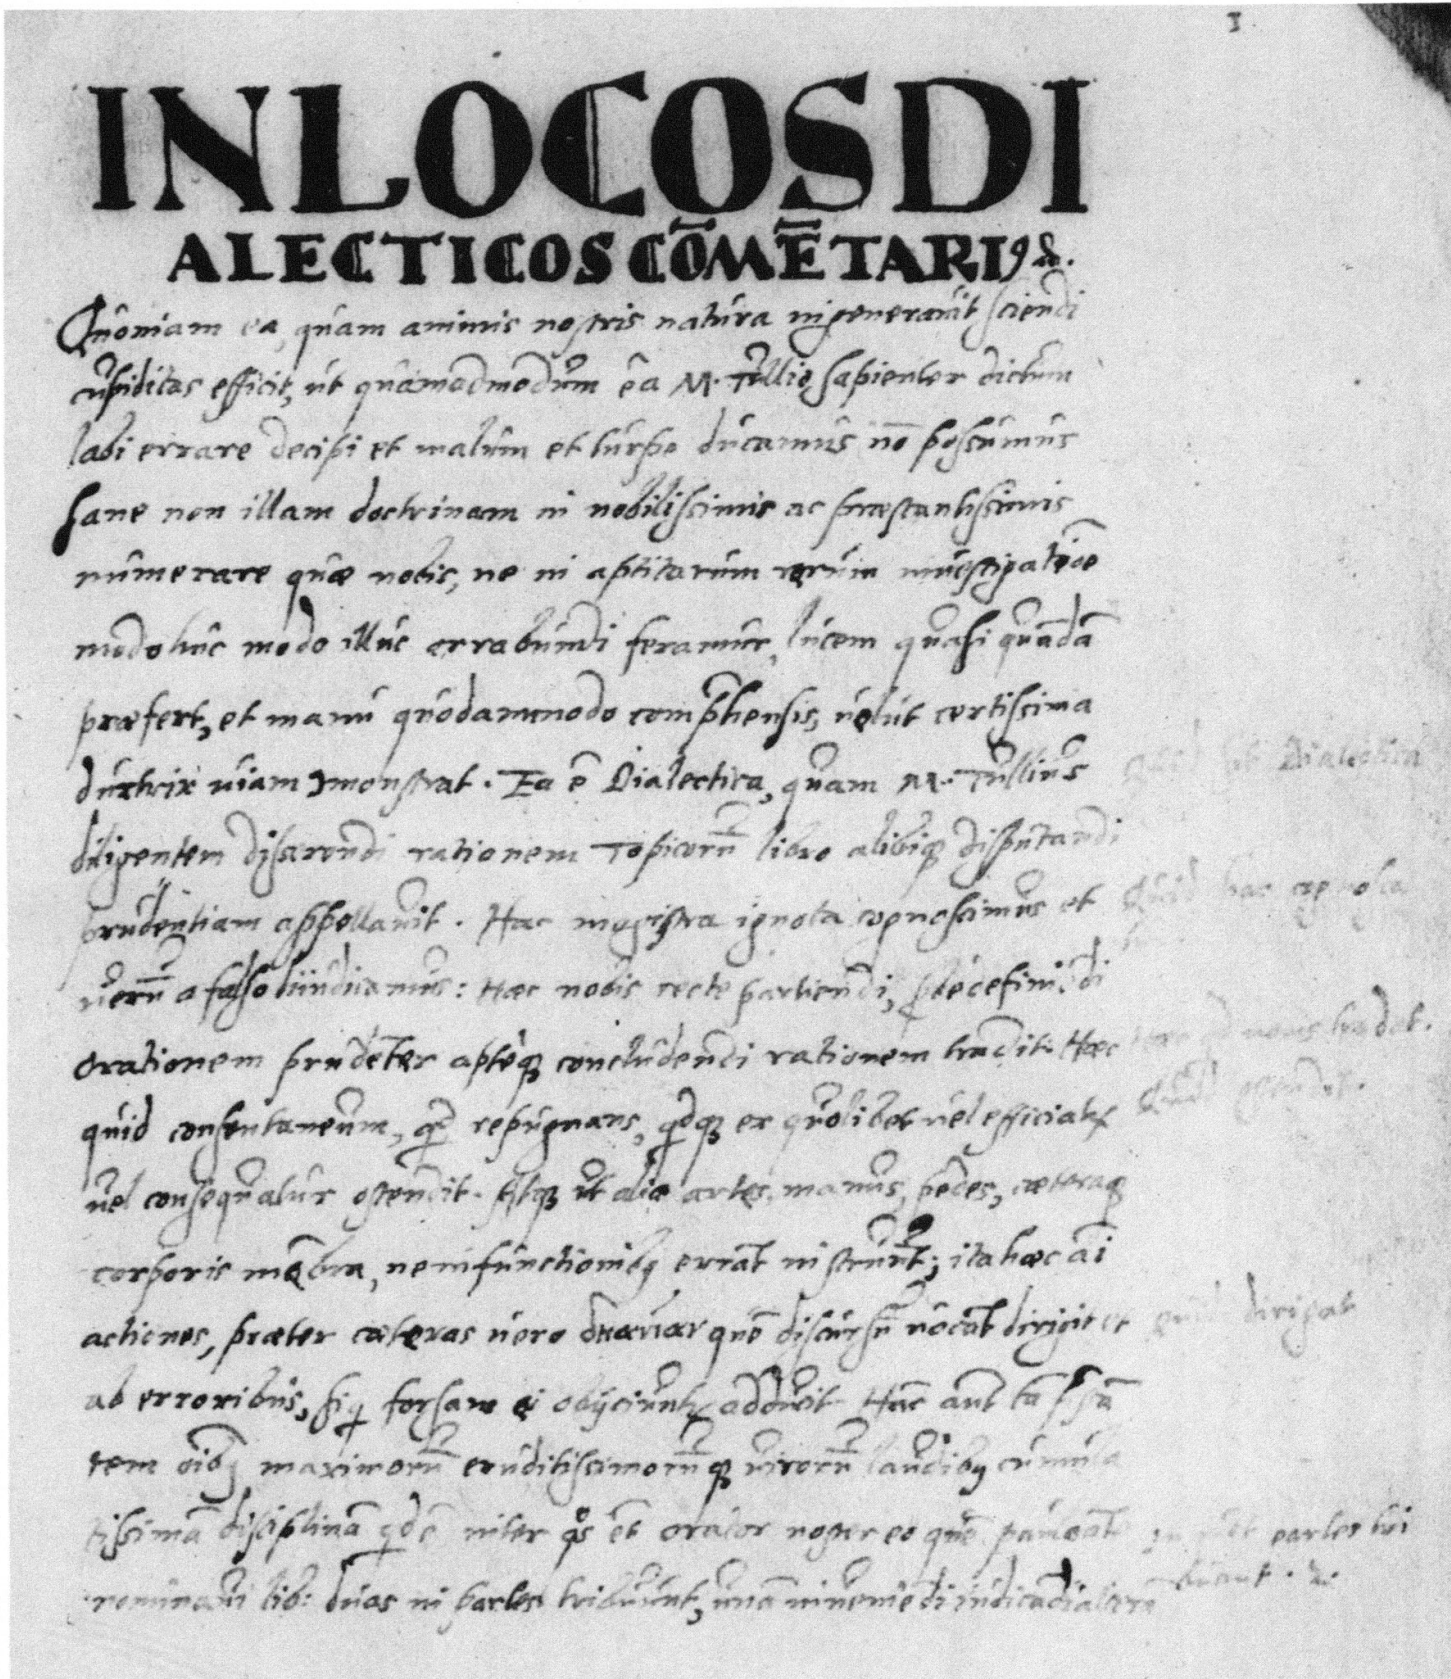 1
IN LOCOS DI
ALECTICOS CŌMĒTARIꝰ
Quoniam ea, quam animis nostris natura ingeneravit sciendi
cupiditas efficit, ut quamadmodum ēa M. Tullio, sapienter dictum
labi errare decipi et malum et turpe ducamus nō possumus
sane non illam doctrinam in nobilissimis ac præstantissimis
numerare quæ nobis, ne in aptitarum rerum investigatiōe
modo huc modo illuc errabundi feramur, lucem quasi quādā
præfert, et manu quodammodo comp̄hensis, velut certissima
ductrix viam monstrat. Ea ē Dialectica, quam M. Tullius
diligentem disserendi rationem Topicorū libro alibiq; disputandi
prudentiam appellavit. Hac magistra ignota cognoscimus et
verū a falso : Hæc nobis recte partiendi,
orationem prudēter apteq; concludendi rationem tradit. Hæc
quid consentaneum, qd repugnans, qdq; ex quolibet vel efficiatr
vel consequatur ostendit. Atq; ut aliæ artes, manus, pedes, cæteraq;
corporis mēbra, ne in functionibꝰ errāt instruūt; ita hæc āi
actiones, præter cæteras vero διανοίαν quē discursū vocāt dirigit et
ab erroribus, siq forsam ei obijciuntr adduxit. Hāc aūt tā
tem oībꝰ maximorū eruditissimorūq; virorū laudibꝰ cumula
tissimā disciplinā qdē inter qs ēt orator noster eo quē
lib: duas in partes tribuunt, unā inveniēdi iudicādi alterā
Quid sit Dialectica
Quid
Quid ostendat.
Quid dirigat
partes